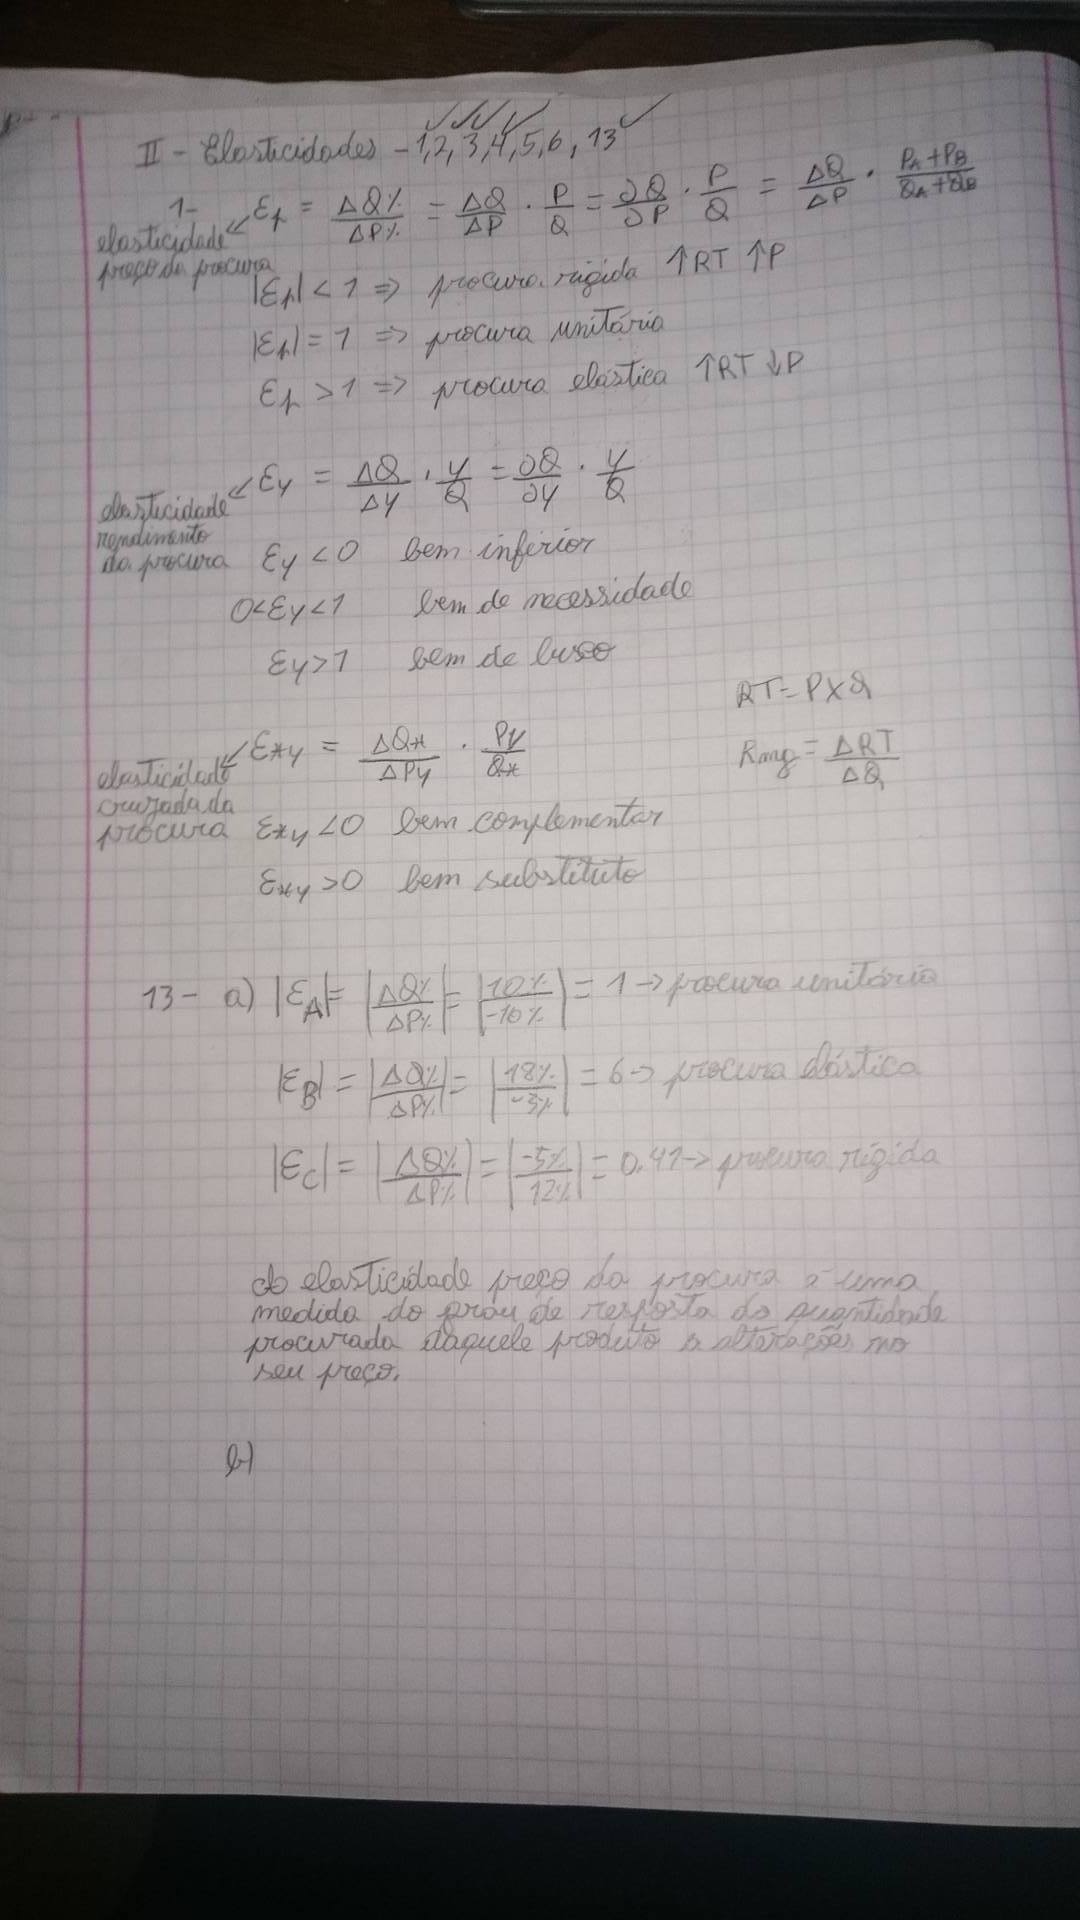 II - Elasticidades - 1,2,3,4,5,6, 13
1-
elasticidade preço da procura ↙ Ep = ΔQ% / ΔP% = ΔQ/ΔP · P/Q = ∂Q/∂P · P/Q = ΔQ/ΔP · PA+PB / QA+QB
|Ep| < 1 => procura rigida ↑RT ↑P
|Ep| = 1 => procura unitária
Ep > 1 => procura elástica ↑RT ↓P
elasticidade rendimento da procura ↙ Ey = ΔQ/Δy · y/Q = ∂Q/∂y · y/Q
Ey < 0 bem inferior
0<Ey<1 bem de necessidade
Ey>1 bem de luxo
RT = P×Q
elasticidade cruzada da procura ↙ Exy = ΔQx/ΔPy · Py/Qx
Rmg = ΔRT/ΔQ
Exy <0 bem complementar
Exy >0 bem substituto
13- a) |EA| = |ΔQ%/ΔP%| = |10%/-10%| = 1 → procura unitária
|EB| = |ΔQ%/ΔP%| = |18%/-3%| = 6 → procura elástica
|EC| = |ΔQ%/ΔP%| = |-5%/12%| = 0.41 → procura rígida
A elasticidade preço da procura é uma
medida do grau de resposta da quantidade
procurada daquele produto a alterações no
seu preço.
b)